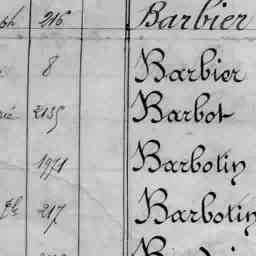 216 Barbier
8 Barbier
2135 Barbot
1971 Barbotin
217 Barbotin